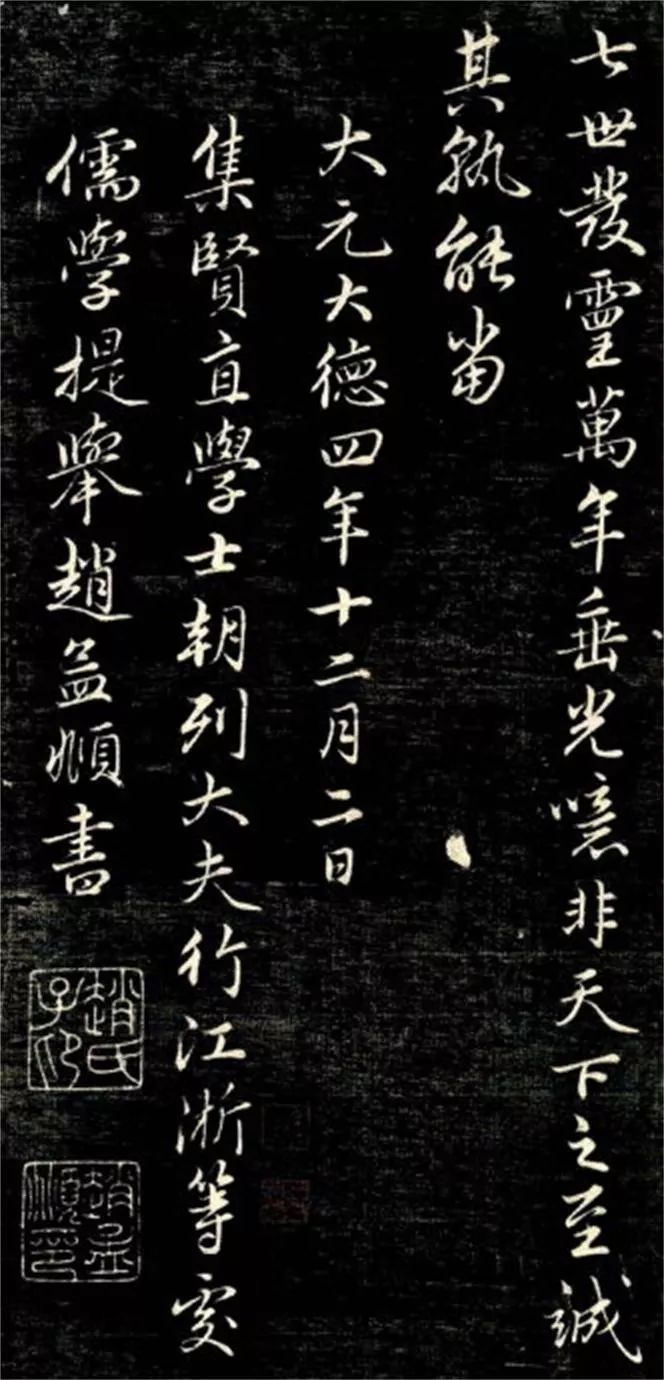 七世發靈萬年垂光噫非天下之至誠
其孰能當
大元大德四年十二月二日
集賢直學士朝列大夫行江浙等處
儒學提舉趙孟頫書
趙氏子昂
趙孟頫印